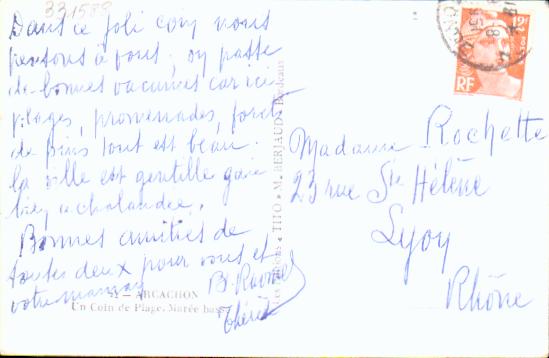 331589
Dans ce joli coin nous
pensons à vous, on passe
de bonnes vacances car ici
plages, promenades, forêt
de pins tout est beau.
la ville est gentille gaie
bien achalandée.
Bonnes amitiés de
toutes deux pour vous et
votre maman
Thérèse
Madame Rochette
23 rue Ste Hélène
Lyon
Rhône
12F
RF
TITO • M. BERJAUD • Bordeaux
ARCACHON
Un Coin de Plage. Marée basse